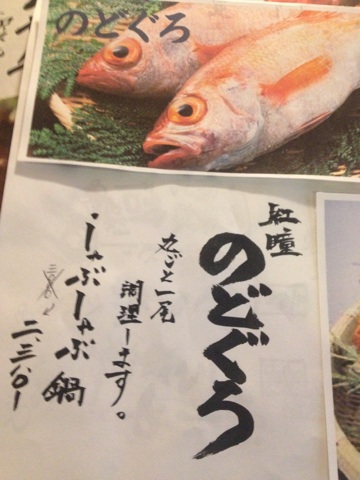 のどぐろ
紅瞳
のどぐろ
丸ごと一尾
調理します。
・しゃぶしゃぶ鍋
二、三八〇ー